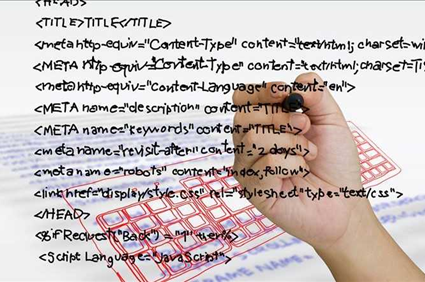 <HEAD>
<TITLE>TITLE</TITLE>
<meta http-equiv="Content-Type" content="text/html; charset=wi
<META http-equiv="Content-Type" content="text/html; charset=TI
<meta http-equiv="Content-Language" content="en">
<META name="description" content="TITLE">
<META name="keywords" content="TITLE">
<meta name="revisit-after" content="2 days">
<meta name="robots" content="index,follow">
<link href="display/style.css" rel="stylesheet" type="text/css">
</HEAD>
<%if Request("Back") = "1" then%>
<Script Language="JavaScript">